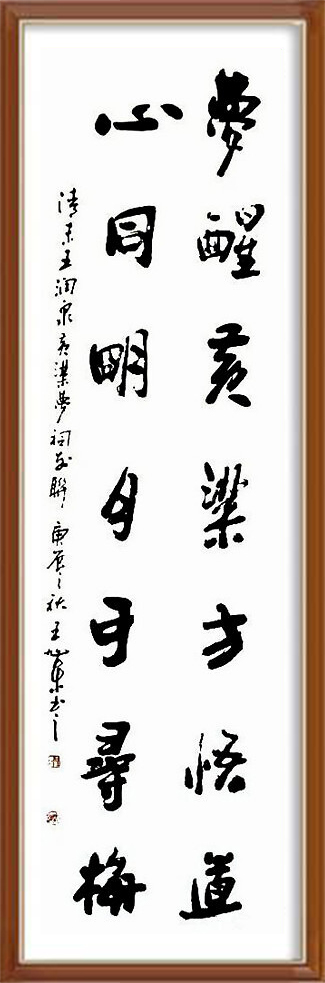 夢醒黃粱方悟道
心同明月可尋梅
清末王潤泉黃粱夢祠前聯 庚辰之秋王業書之